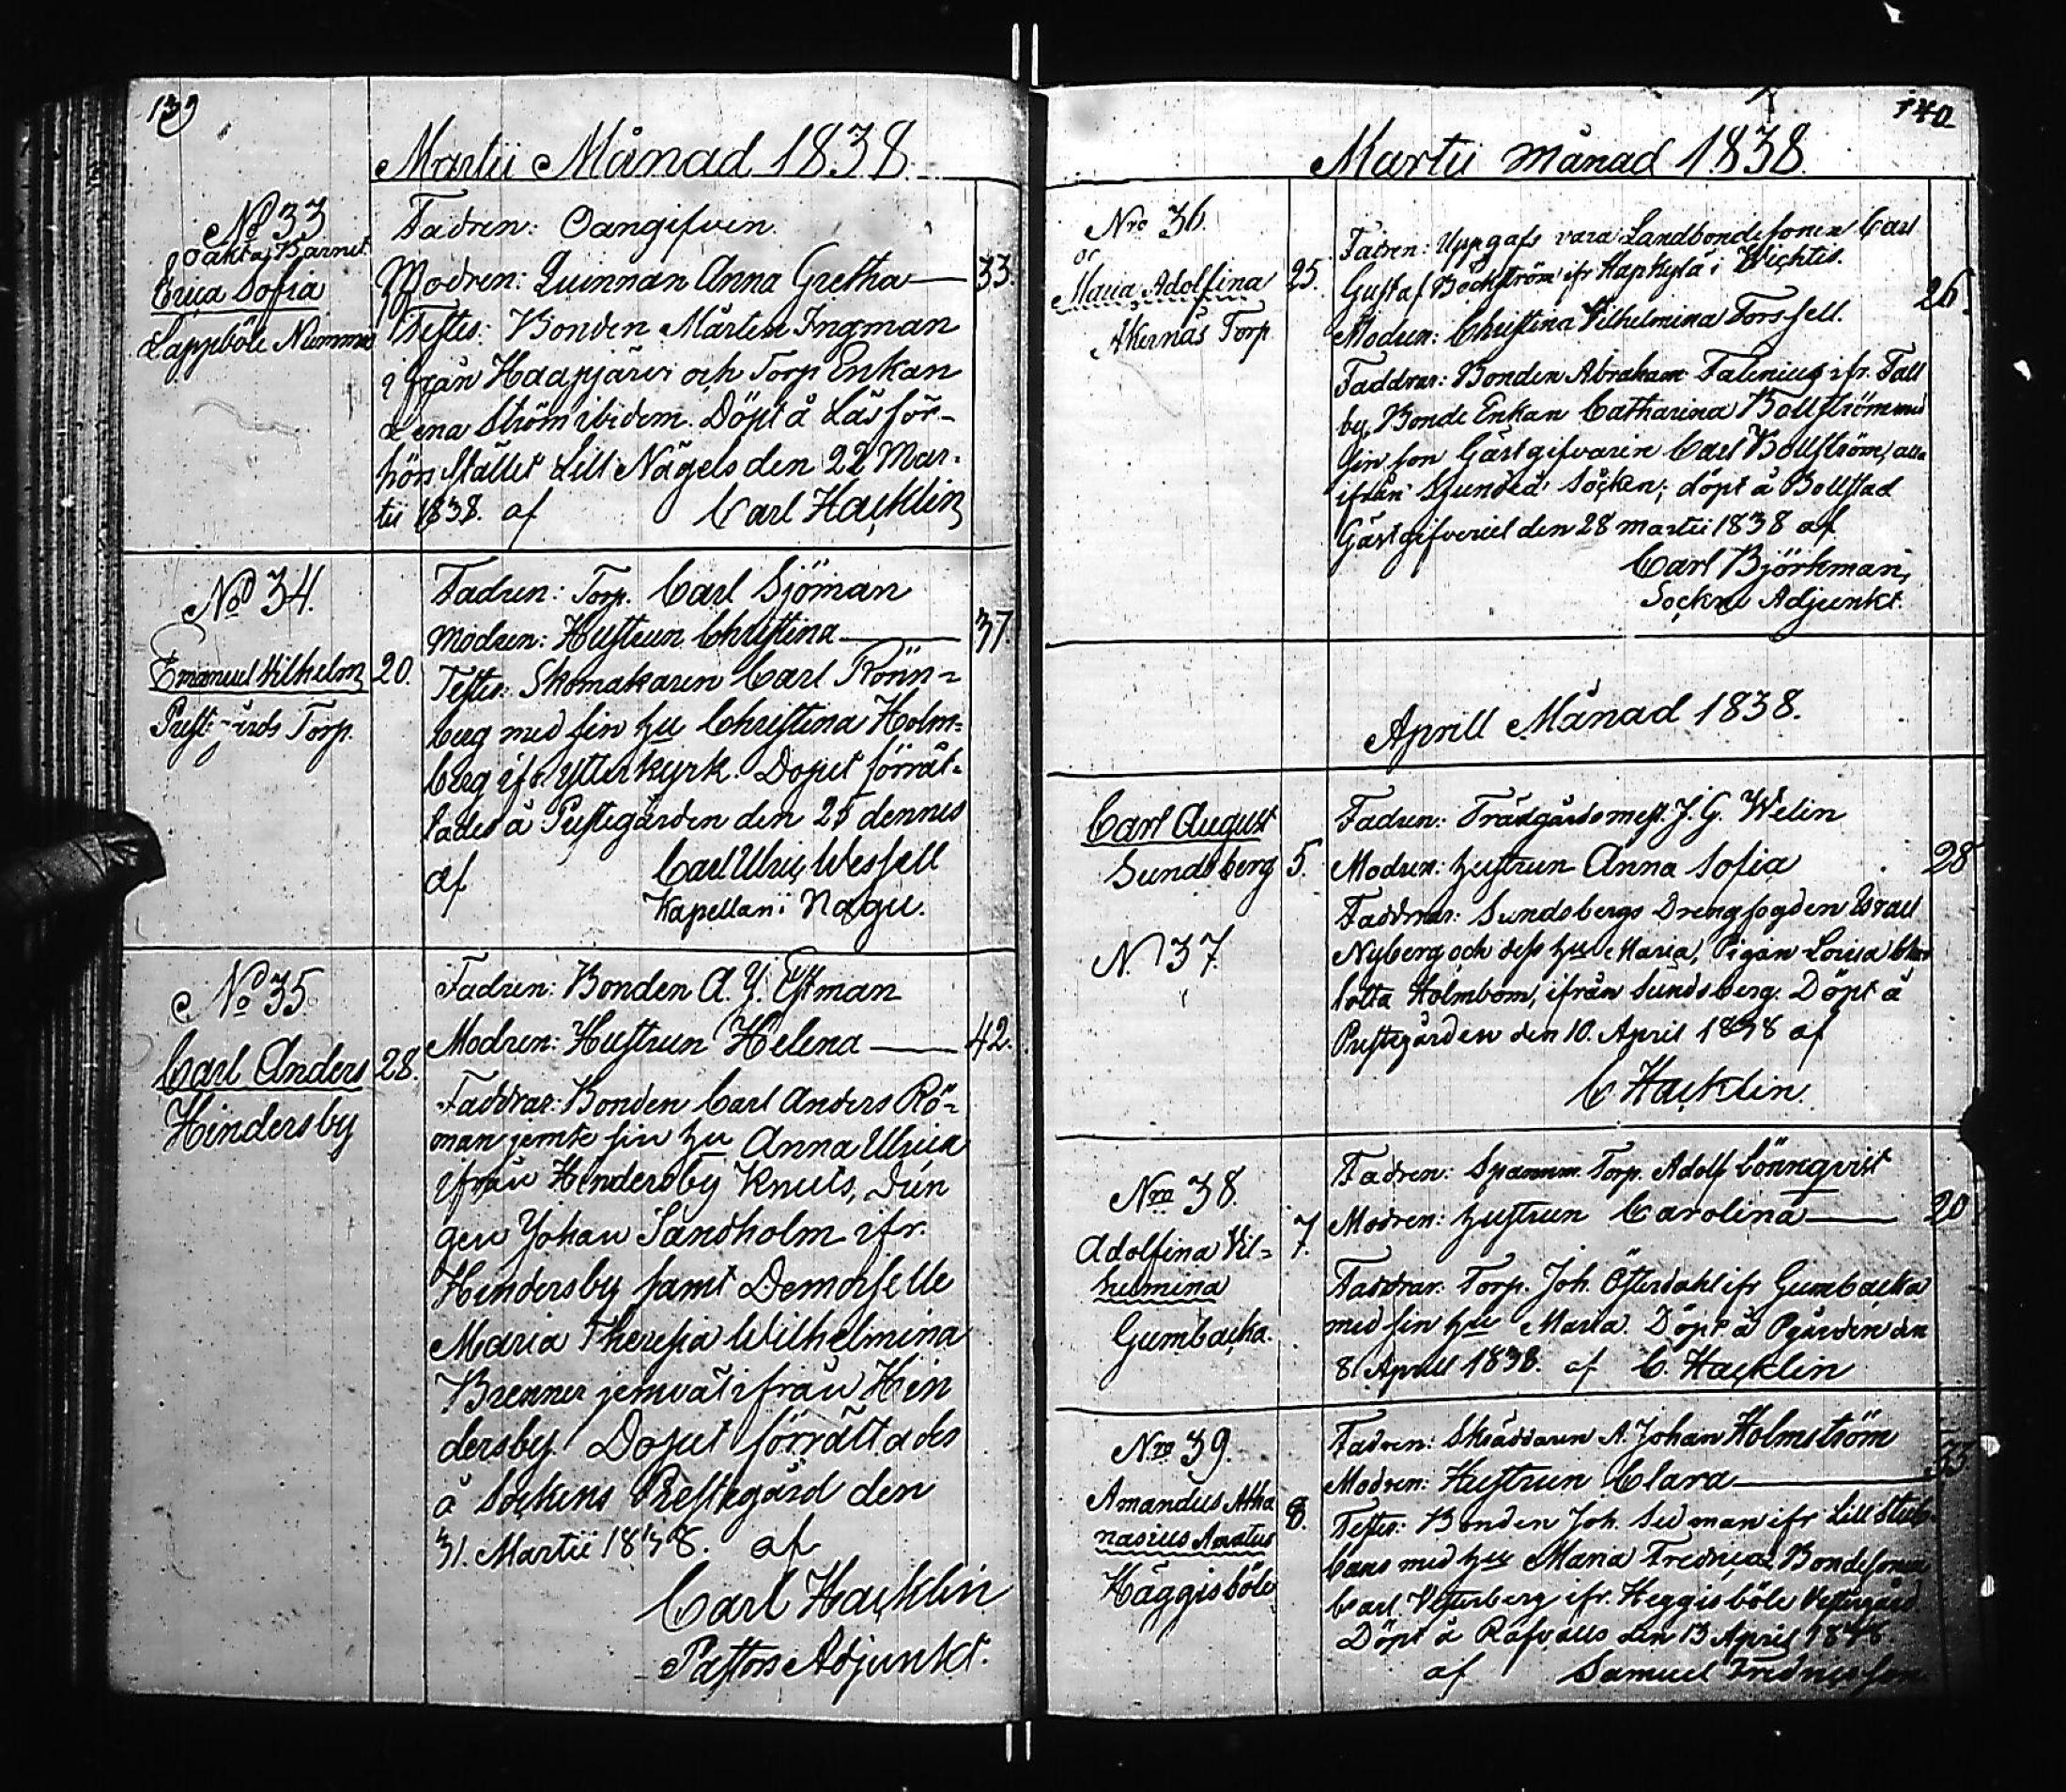 139
Martii Månad 1838.
No 33
Oäkta Barnet
Erica Sofia
Lappböle Nummi
Fadren: Oangifven.
Modren: Quinnan Anna Gretha — 33.
Testes: Bonden Mårten Ingman
ifrån Haapjärvi och Torp Enkan
Lena Ström ibidem. Döpt å Läsför-
hörs Stället Lill Nägels den 22 Mar-
tii 1838. af Carl Hacklin
No 34.
Emanuel Vilhelm 20.
Torp.
Fadren: Torp. Carl Sjöman
Modren: Hustrun Christina — 37.
Testes: Skomakaren Carl Rönn-
berg med sin hu Christina Holm-
berg ifr Ytterkyrk. Dopet förrät-
tades å Prestegården den 25 dennes
af Carl Ulric Wessell
Kapellan i Nagu.
No 35
Carl Anders 28.
Hindersby
Fadren: Bonden A. J. Estman
Modren: Hustrun Helena — 42.
Faddrar: Bonden Carl Anders Rö-
man jemte sin hu Anna Ulrica
ifrån Hindersby Knuts, Drän
gen Johan Sandholm ifr.
Hindersby samt Demoiselle
Maria Theresia Wilhelmina
Brenner jemväl ifrån Hin
dersby. Dopet förrättades
å Sockens Prestegård den
31. Martii 1838. af
Carl Hacklin
Pastors Adjunkt.
140
Martii månad 1838.
Nro 36.
oä
Maria Adolfina 25.
Åkernäs Torp
Fadren: Uppgafs vara Landbondesonen Carl
Gustaf Böckström ifr Haphylä i Wichtis.
26.
Modren: Christina Vilhelmina Forssell.
Faddrar: Bonden Abraham Falenius ifr. Tall
by, Bonde Enkan Catharina Bollström med
sin son Gästgifvaren Carl Bollström, alla
ifrån Sjundeå Socken; döpt å Bollstad
Gästgifveriet den 28 martii 1838 af
Carl Björkman,
Sockne Adjunkt.
Aprill Månad 1838.
Carl August
Sundsberg 5.
N. 37.
Fadren: Trädgårdsmest. J. G. Welin
Modren: hustrun Anna Sofia 28
Faddrar: Sundsbergs Drengfogden Israel
Nyberg och dess hu Maria, Pigan Lovisa Char
lotta Holmbom, ifrån Sundsberg. Döpt å
Prestgården den 10. April 1838 af
C Hacklin.
Nro 38.
Adolfina Vil- 7.
helmina
Gumbacka.
Fadren: Spannm. Torp. Adolf Lönnqvist
Modren: hustrun Carolina — 20
Faddrar: Torp. Joh. Österdahl ifr Gumbacka
med sin hu Maria. Döpt å Pgården den
8 Aprill 1838. af C. Hacklin
Nro 39.
Amandus Atha
nasius Amatus 8.
Häggisböle
Fadren: Skräddaren A. Johan Holmström
Modren: Hustrun Clara — 33
Testes: Bonden Joh. Sedman ifr Lill Stub-
bans med hu Maria Fredrica Bondesonen
Carl Vesterberg ifr. Heggisböle Vestergård.
Döpt å Räfvalls den 13 April 1838.
af Samuel Fredricsson